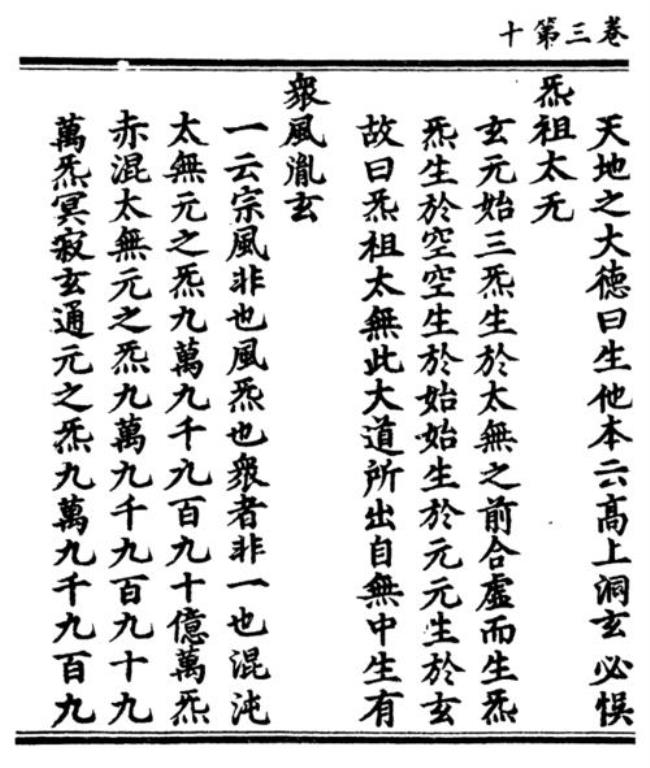 卷三第十
天地之大德曰生他本云高上洞玄必悞
炁祖太无
玄元始三炁生於太無之前合虛而生炁
炁生於空空生於始始生於元元生於玄
故曰炁祖太無此大道所出自無中生有
衆風胤玄
一云宗風非也風炁也衆者非一也混沌
太無元之炁九萬九千九百九十億萬炁
赤混太無元之炁九萬九千九百九十九
萬炁冥寂玄通元之炁九萬九千九百九